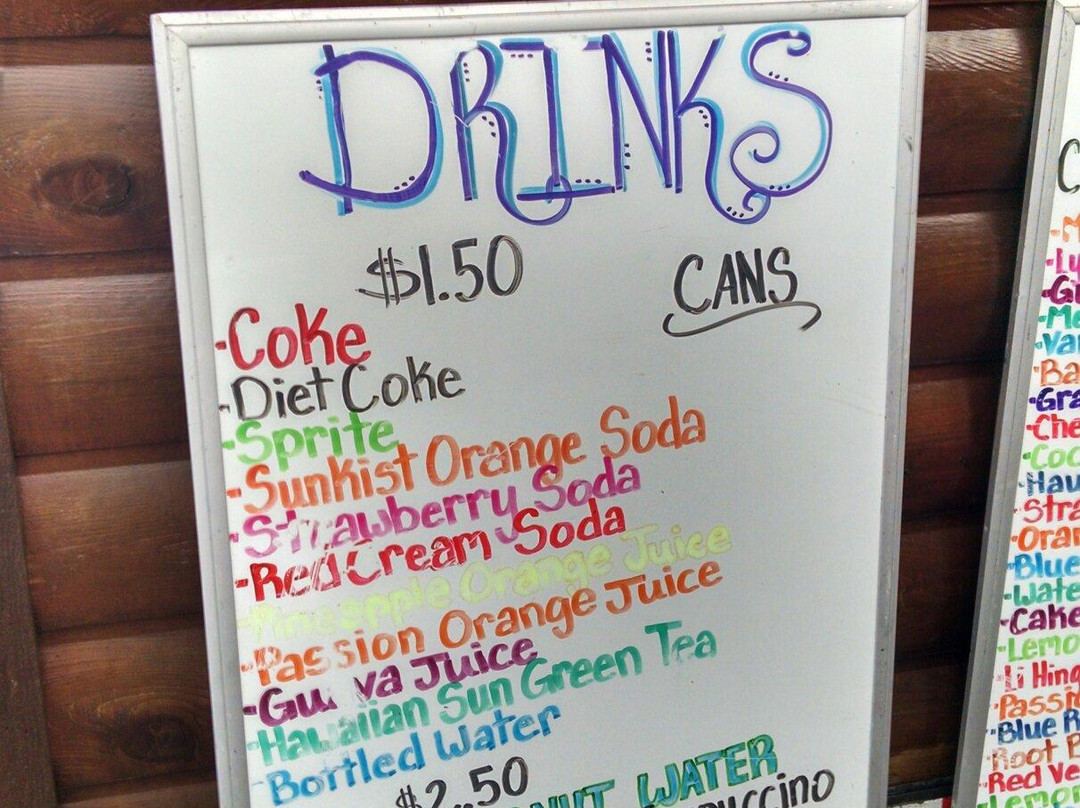 DRINKS
$1.50 CANS
-Coke
-Diet Coke
-Sprite
-Sunkist Orange Soda
-Strawberry Soda
-Red Cream Soda
-Pineapple Orange Juice
-Passion Orange Juice
-Guava Juice
-Hawaiian Sun Green Tea
-Bottled Water
$2.50
NUT WATER
puccino
C
-M
-Ly
-G
-Me
-Va
-Ba
-Gra
-Che
-Coc
-Hau
-Stra
-Oran
-Blue
-Wate
-Cake
-Lemo
-Li Hing
-Passi
-Blue R
-Root B
-Red Ve